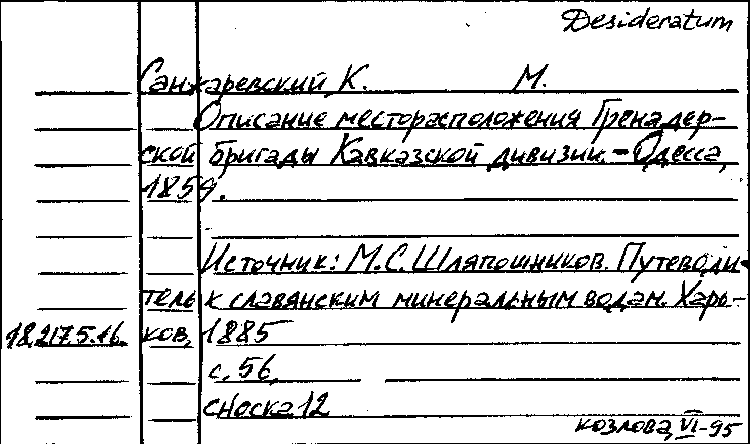 Desideratum
Санжаревский К. М.
Описание месторасположения Гренадер-
ской бригады Кавказской дивизии. - Одесса,
1859.
Источник: М.С. Шляпошников. Путеводи-
тель к славянским минеральным водам. Харь-
18.217.5.16. ков, 1885
с. 56,
сноска 12
козлова, VI-95